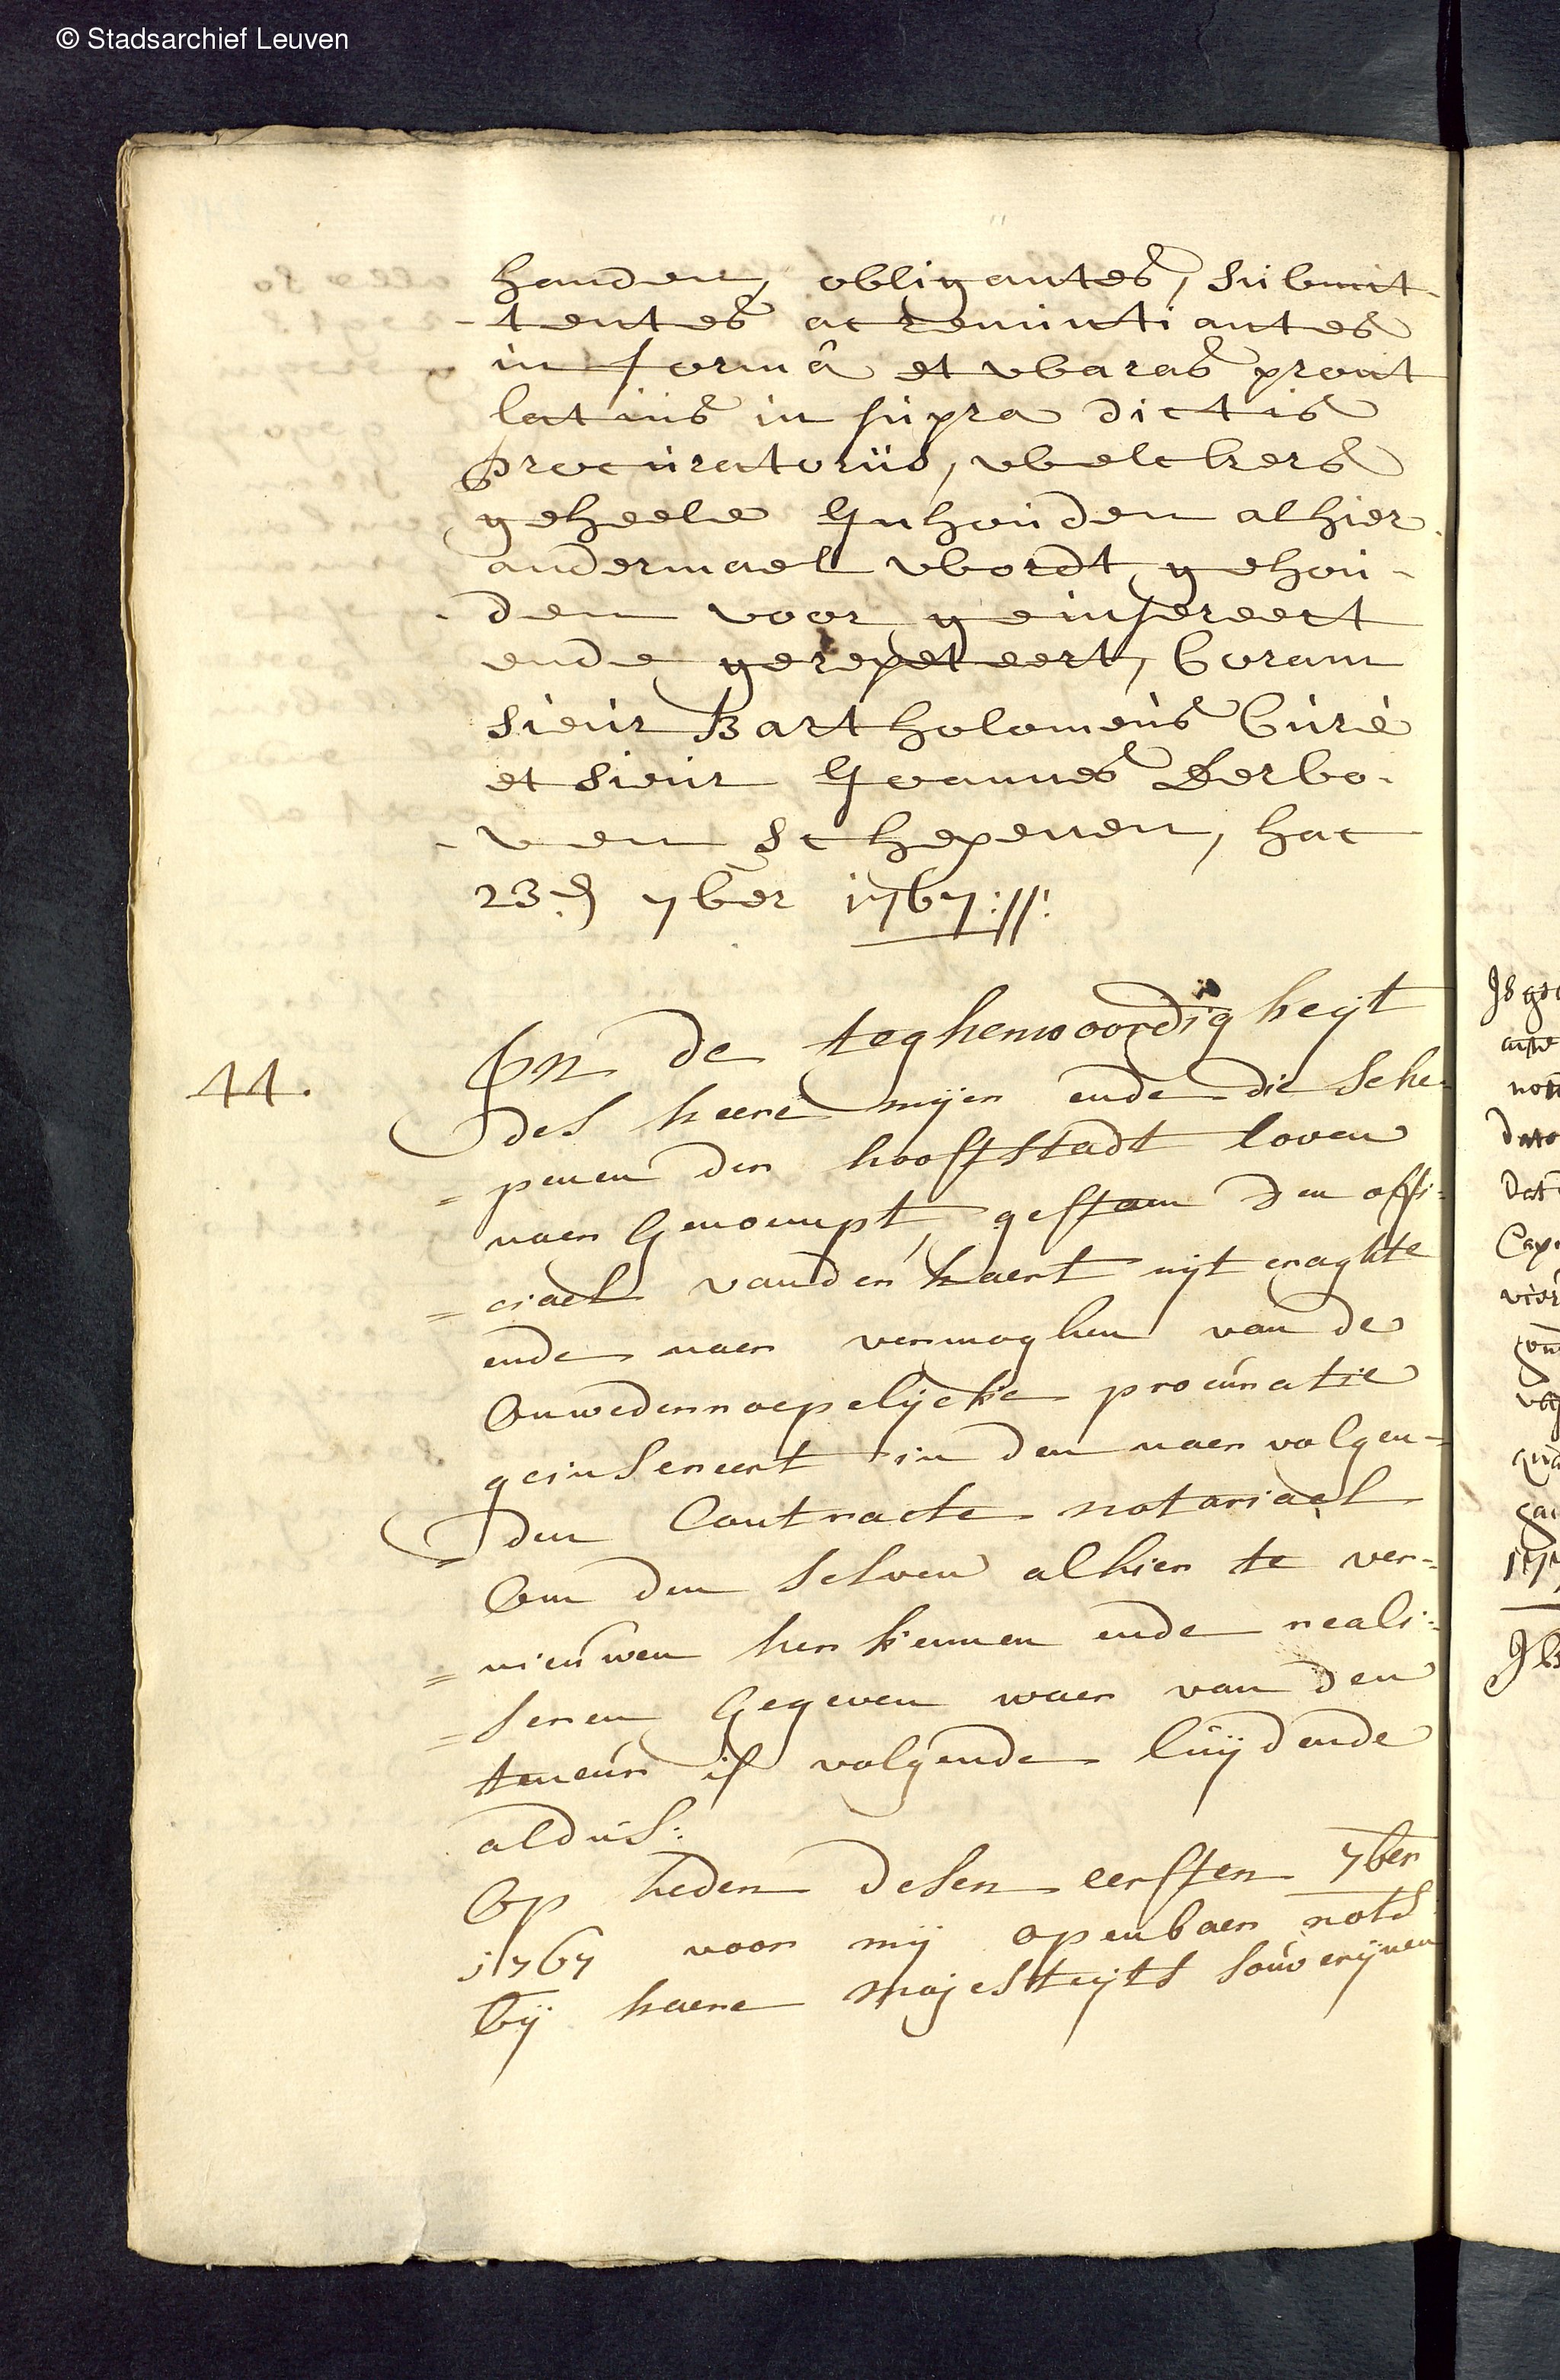 © Stadsarchief Leuven
handen, obligantes, submit-
-tentes ac renuntiantes
in formâ et waras prout
latius in supra dictis
procuratoriis, welckers
geheele Inhouden alhier
andermael wordt gehou-
-den voor geinsereert
ende gerepeteert, Coram
sieur Bartholomeus Curé
et sieur Joannes Derbo-
-ven schepenen, hac
23.ª 7ber 1767://:
44.
In de teghenwoordigheyt
des heere mijer ende die sche-
=penen der hooftstadt loven
naer Genoempt, gestaen den offi-
=ciael vanden haert uyt craghte
ende naer vermoghen van de
Onwederroepelijcke procuratie
geinsereert in den naer volgen-
=den Contracte notariael
Om den selven alhier te ver-
=nieuwen herkennen ende reali-
=seren Gegeven waer van den
teneur is volgende luijdende
aldus:
Op heden desen eersten 7ber
1767 voor mij openbaer nots
bij haere majesteyts souverijnen